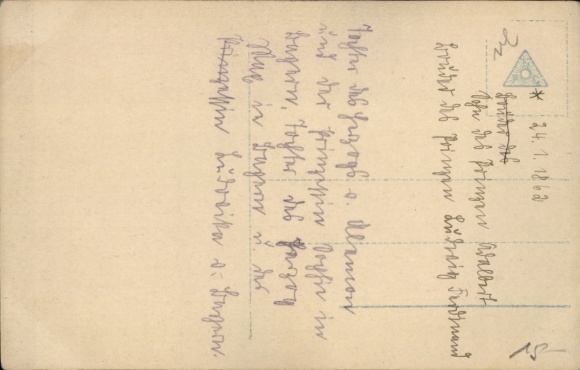 * 24. 1. 1862
Bruder des
Sohn des Prinzen Adalbert
Bruder des Prinzen Ludwig Ferdinand
Tochter des Herzogs v. Alencon
und der Prinzessin Sophie in
Bayern, Tochter des Herzog
Max in Bayern u. der
Prinzessin Ludovika v. Bayern.
15-